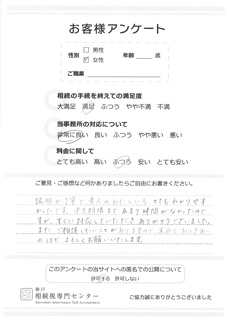 お客様アンケート
性別 □ 男性 年齢 歳
☑ 女性
ご職業
相続の手続を終えての満足度
大満足 満足 ふつう やや不満 不満
当事務所の対応について
非常に良い 良い ふつう やや悪い 悪い
料金に関して
とても高い 高い ふつう 安い とても安い
ご意見・ご感想など何かありましたらご自由にお書きください。
説明が丁寧で素人のわたしにも とてもわかりやす
かったです。申告期限まであまり時間がなかったので
すが、すぐに対応していただき ありがとうございました。
また、ご相談したいことがありますので 末永く お付き合い
のほど よろしくお願いいたします。
このアンケートの当サイトへの匿名での公開について
許可する 許可しない
神戸
相続税専門センター
ご協力誠にありがとうございました